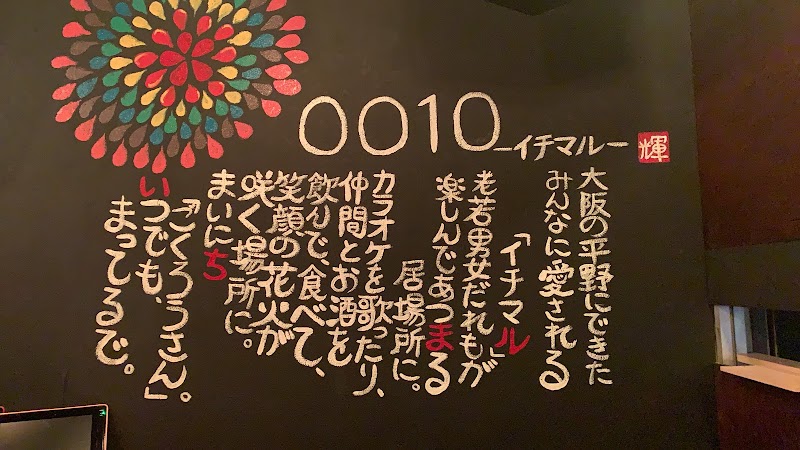 0010
−イチマル−
輝
大阪の平野にできた
みんなに愛される
「イチマル」
老若男女だれもが
楽しんであつまる
居場所に。
カラオケを歌ったり、
仲間とお酒を
飲んで、食べて、
笑顔の花火が
咲く場所に。
まいにち
「ごくろうさん」。
いつでも、
まってるで。